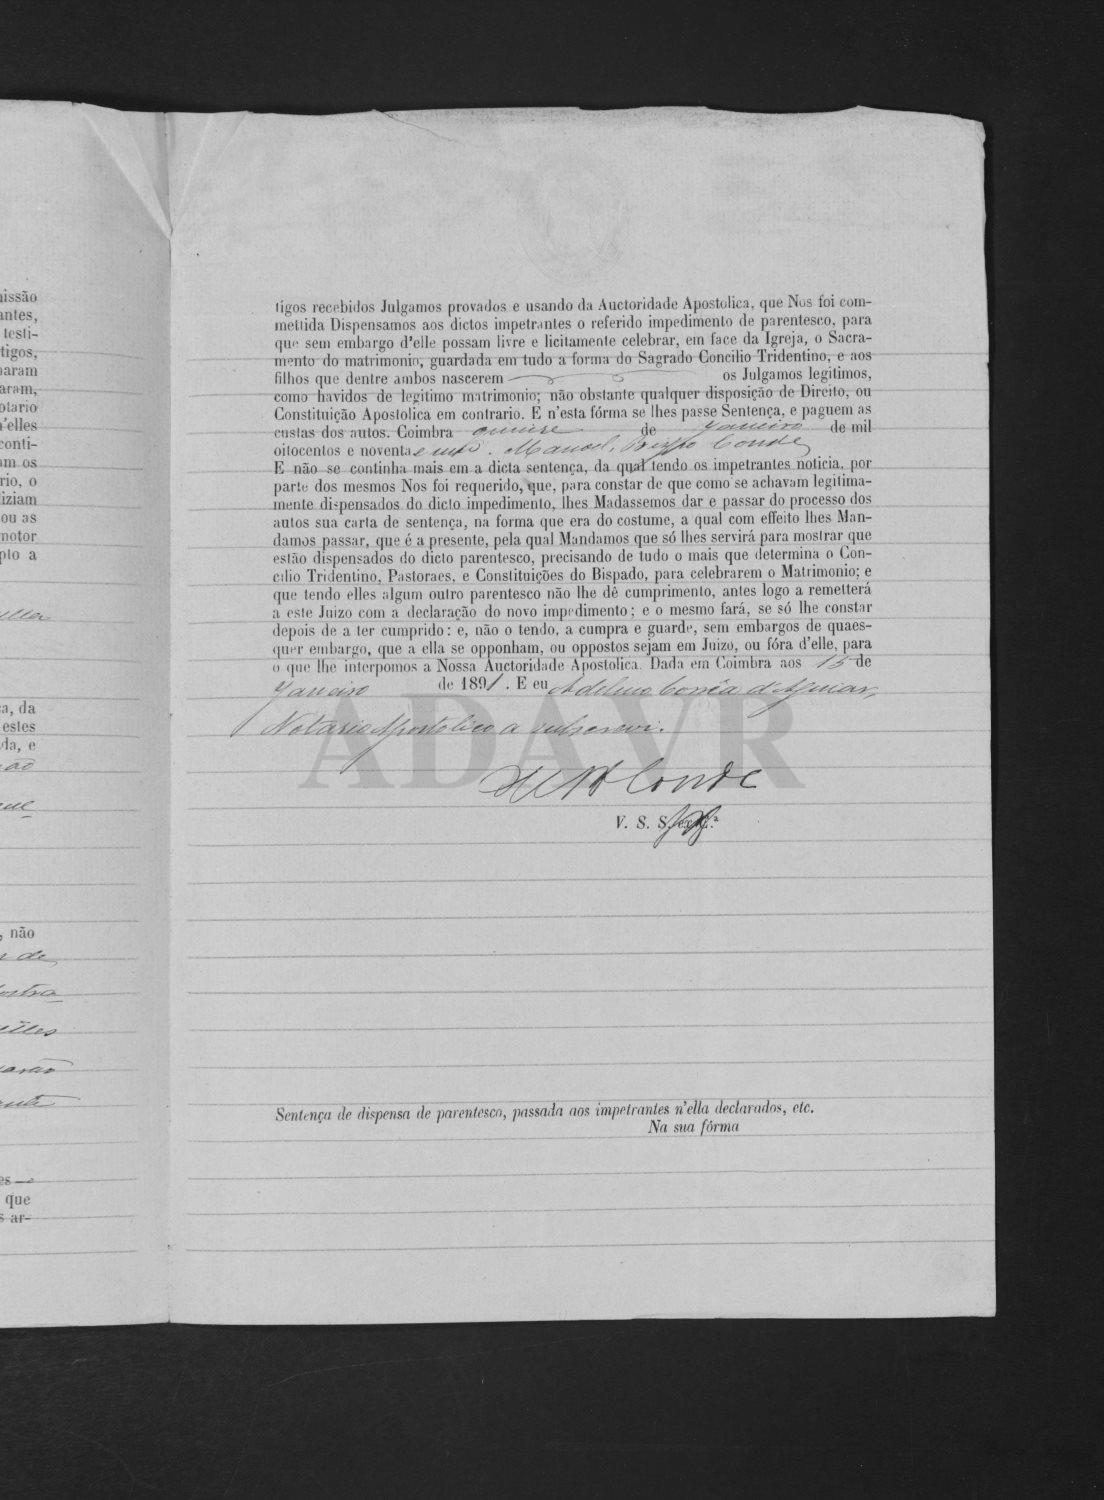 issão
antes,
testi-
tigos,
naram
aram,
otario
d'elles
conti-
am os
rio, o
liziam
ou as
motor
pto a
ella
a, da
estes
da, e
ao
que
, não
de
ostra-
elles
ante
es
que
s ar-
tigos recebidos Julgamos provados e usando da Auctoridade Apostolica, que Nos foi com-
mettida Dispensamos aos dictos impetrantes o referido impedimento de parentesco, para
que sem embargo d'elle possam livre e licitamente celebrar, em face da Igreja, o Sacra-
mento do matrimonio, guardada em tudo a forma do Sagrado Concilio Tridentino, e aos
filhos que dentre ambos nascerem os Julgamos legitimos,
como havidos de legitimo matrimonio; não obstante qualquer disposição de Direito, ou
Constituição Apostolica em contrario. E n'esta fórma se lhes passe Sentença, e paguem as
custas dos autos. Coimbra quinze de Janeiro de mil
oitocentos e noventa e um. Manoel, Bispo Conde
E não se continha mais em a dicta sentença, da qual tendo os impetrantes noticia, por
parte dos mesmos Nos foi requerido, que, para constar de que como se achavam legitima-
mente dispensados do dicto impedimento, lhes Madassemos dar e passar do processo dos
autos sua carta de sentença, na forma que era do costume, a qual com effeito lhes Man-
damos passar, que é a presente, pela qual Mandamos que só lhes servirá para mostrar que
estão dispensados do dicto parentesco, precisando de tudo o mais que determina o Con-
cilio Tridentino, Pastoraes, e Constituições do Bispado, para celebrarem o Matrimonio; e
que tendo elles algum outro parentesco não lhe dê cumprimento, antes logo a remetterá
a este Juizo com a declaração do novo impedimento; e o mesmo fará, se só lhe constar
depois de a ter cumprido: e, não o tendo, a cumpra e guarde, sem embargos de quaes-
quer embargo, que a ella se opponham, ou oppostos sejam em Juizo, ou fóra d'elle, para
o que lhe interpomos a Nossa Auctoridade Apostolica. Dada em Coimbra aos 15 de
Janeiro de 1891. E eu Adelino Corrêa d'Aguiar,
Notario Apostolico a subscrevi.
ADAVR
Conde
V. S. S. ex C.ª
Sentença de dispensa de parentesco, passada aos impetrantes n'ella declarados, etc.
Na sua fórma